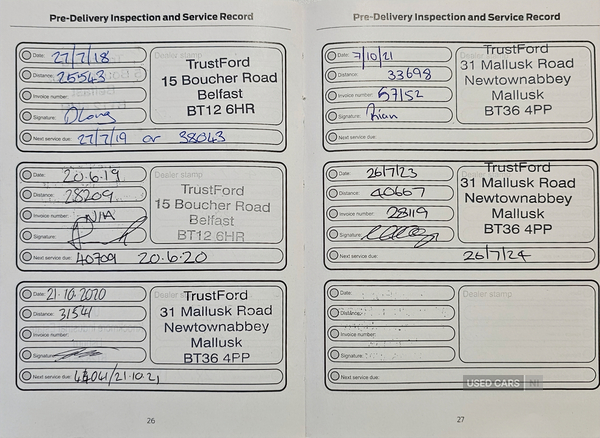 Pre-Delivery Inspection and Service Record
Date: 27/7/18
Distance: 25543
Invoice number:
Signature: DLong
Next service due: 27/7/19 or 38043
TrustFord
15 Boucher Road
Belfast
BT12 6HR
Date: 20.6.19
Distance: 28209
Invoice number: N/A
Signature:
Next service due: 40709 20.6.20
Dealer stamp
TrustFord
15 Boucher Road
Belfast
BT12 6HR
Date: 21.10.2020
Distance: 31541
Invoice number:
Signature:
Next service due: 44041/21.10.21
TrustFord
31 Mallusk Road
Newtownabbey
Mallusk
BT36 4PP
26
Pre-Delivery Inspection and Service Record
Date: 7/10/21
Distance: 33698
Invoice number: 57152
Signature: Rian
Next service due:
TrustFord
31 Mallusk Road
Newtownabbey
Mallusk
BT36 4PP
Date: 26/7/23
Distance: 40667
Invoice number: 28119
Signature:
Next service due: 26/7/24
TrustFord
31 Mallusk Road
Newtownabbey
Mallusk
BT36 4PP
Date:
Distance:
Invoice number:
Signature:
Next service due:
Dealer stamp
USED CARS NI
27